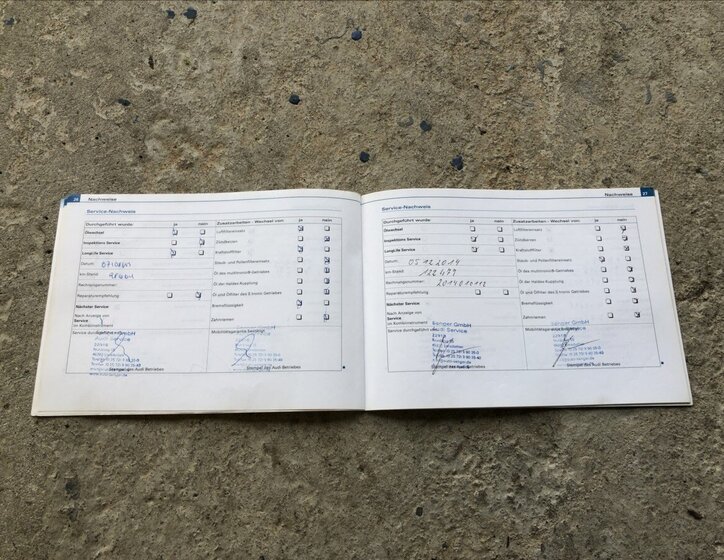 26 Nachweise
Service-Nachweis
Durchgeführt wurde: ja nein Zusatzarbeiten - Wechsel von: ja nein
Ölwechsel Luftfiltereinsatz
Inspektions Service Zündkerzen
LongLife Service Kraftstofffilter
Datum: Staub- und Pollenfiltereinsatz
km-Stand: Öl des multitronic®-Getriebes
Rechnungsnummer: Öl der Haldex Kupplung
Reparaturempfehlung Öl und Ölfilter des S tronic Getriebes
Nächster Service Bremsflüssigkeit
Nach Anzeige von
Service Zahnriemen
im Kombiinstrument
Service durchgeführt Mobilitätsgarantie bestätigt
GmbH
Audi Service
Stempel des Audi Betriebes Stempel des Audi Betriebes
Nachweise 27
Service-Nachweis
Durchgeführt wurde: ja nein Zusatzarbeiten - Wechsel von: ja nein
Ölwechsel Luftfiltereinsatz
Inspektions Service Zündkerzen
LongLife Service Kraftstofffilter
Datum: 05.12.2014 Staub- und Pollenfiltereinsatz
km-Stand: 122479 Öl des multitronic®-Getriebes
Rechnungsnummer: Öl der Haldex Kupplung
Reparaturempfehlung Öl und Ölfilter des S tronic Getriebes
Nächster Service Bremsflüssigkeit
Nach Anzeige von
Service Zahnriemen
im Kombiinstrument
Service durchgeführt Mobilitätsgarantie bestätigt
GmbH GmbH
Audi Service Audi Service
Stempel des Audi Betriebes